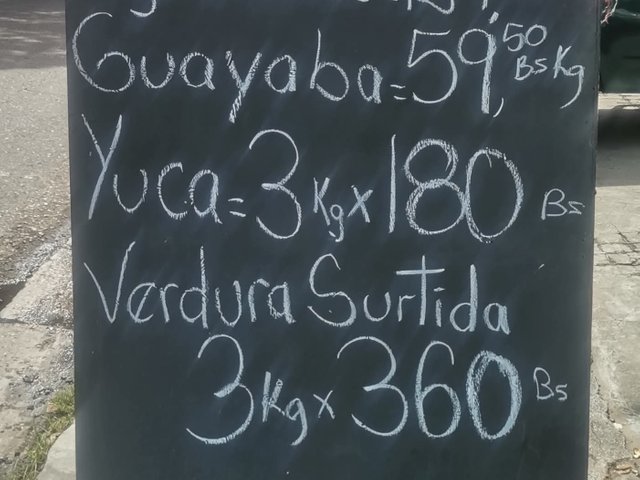 Guayaba=59,50 Bs Kg
Yuca=3Kgx180 Bs
Verdura Surtida
3Kgx360 Bs